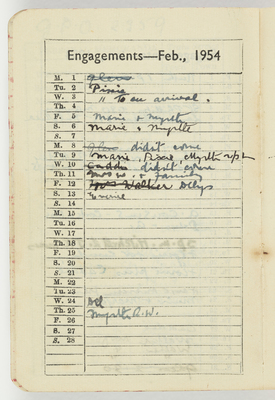 Engagements—Feb., 1954
M. 1
Tu. 2 Pixie
W. 3 " To see arrival.
Th. 4
F. 5 Marie & Myrtle
S. 6 Marie & Myrtle
S. 7
M. 8 didn't come
Tu. 9 Marie. Pixie. Myrtle
W. 10 didn't come
Th. 11 & Family
F. 12 Walker Dellys
S. 13
S. 14
M. 15
Tu. 16
W. 17
Th. 18
F. 19
S. 20
S. 21
M. 22
Tu. 23
W. 24
Th. 25 Myrtle R.W.
F. 26
S. 27
S. 28